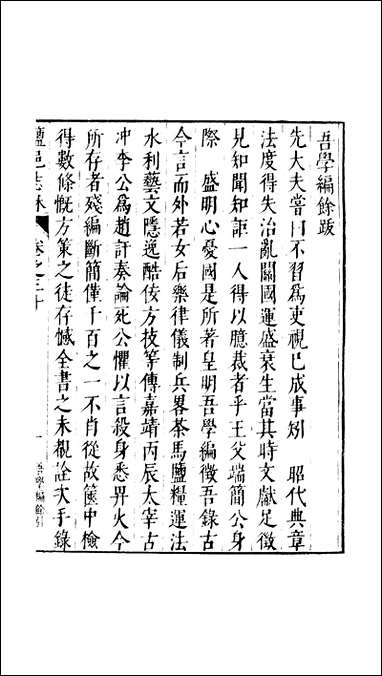 吾學編餘跋
先大夫嘗曰不習爲吏視已成事矧　昭代典章
法度得失治亂關國運盛衰生當其時文獻足徵
見知聞知詎一人得以臆裁者乎王父端簡公身
際　盛明心憂國是所著皇明吾學編徵吾錄古
今言而外若女后樂律儀制兵畧茶馬鹽糧運法
水利藝文隱逸酷佞方技等傳嘉靖丙辰太宰古
冲李公爲趙訐奏論死公懼以言殺身悉畀火今
所存者殘編斷簡僅千百之一不肖從故篋中檢
得數條慨方策之徒存憾全書之未覩詮次手錄
鹽邑志林
卷之三十
一
吾學編餘引